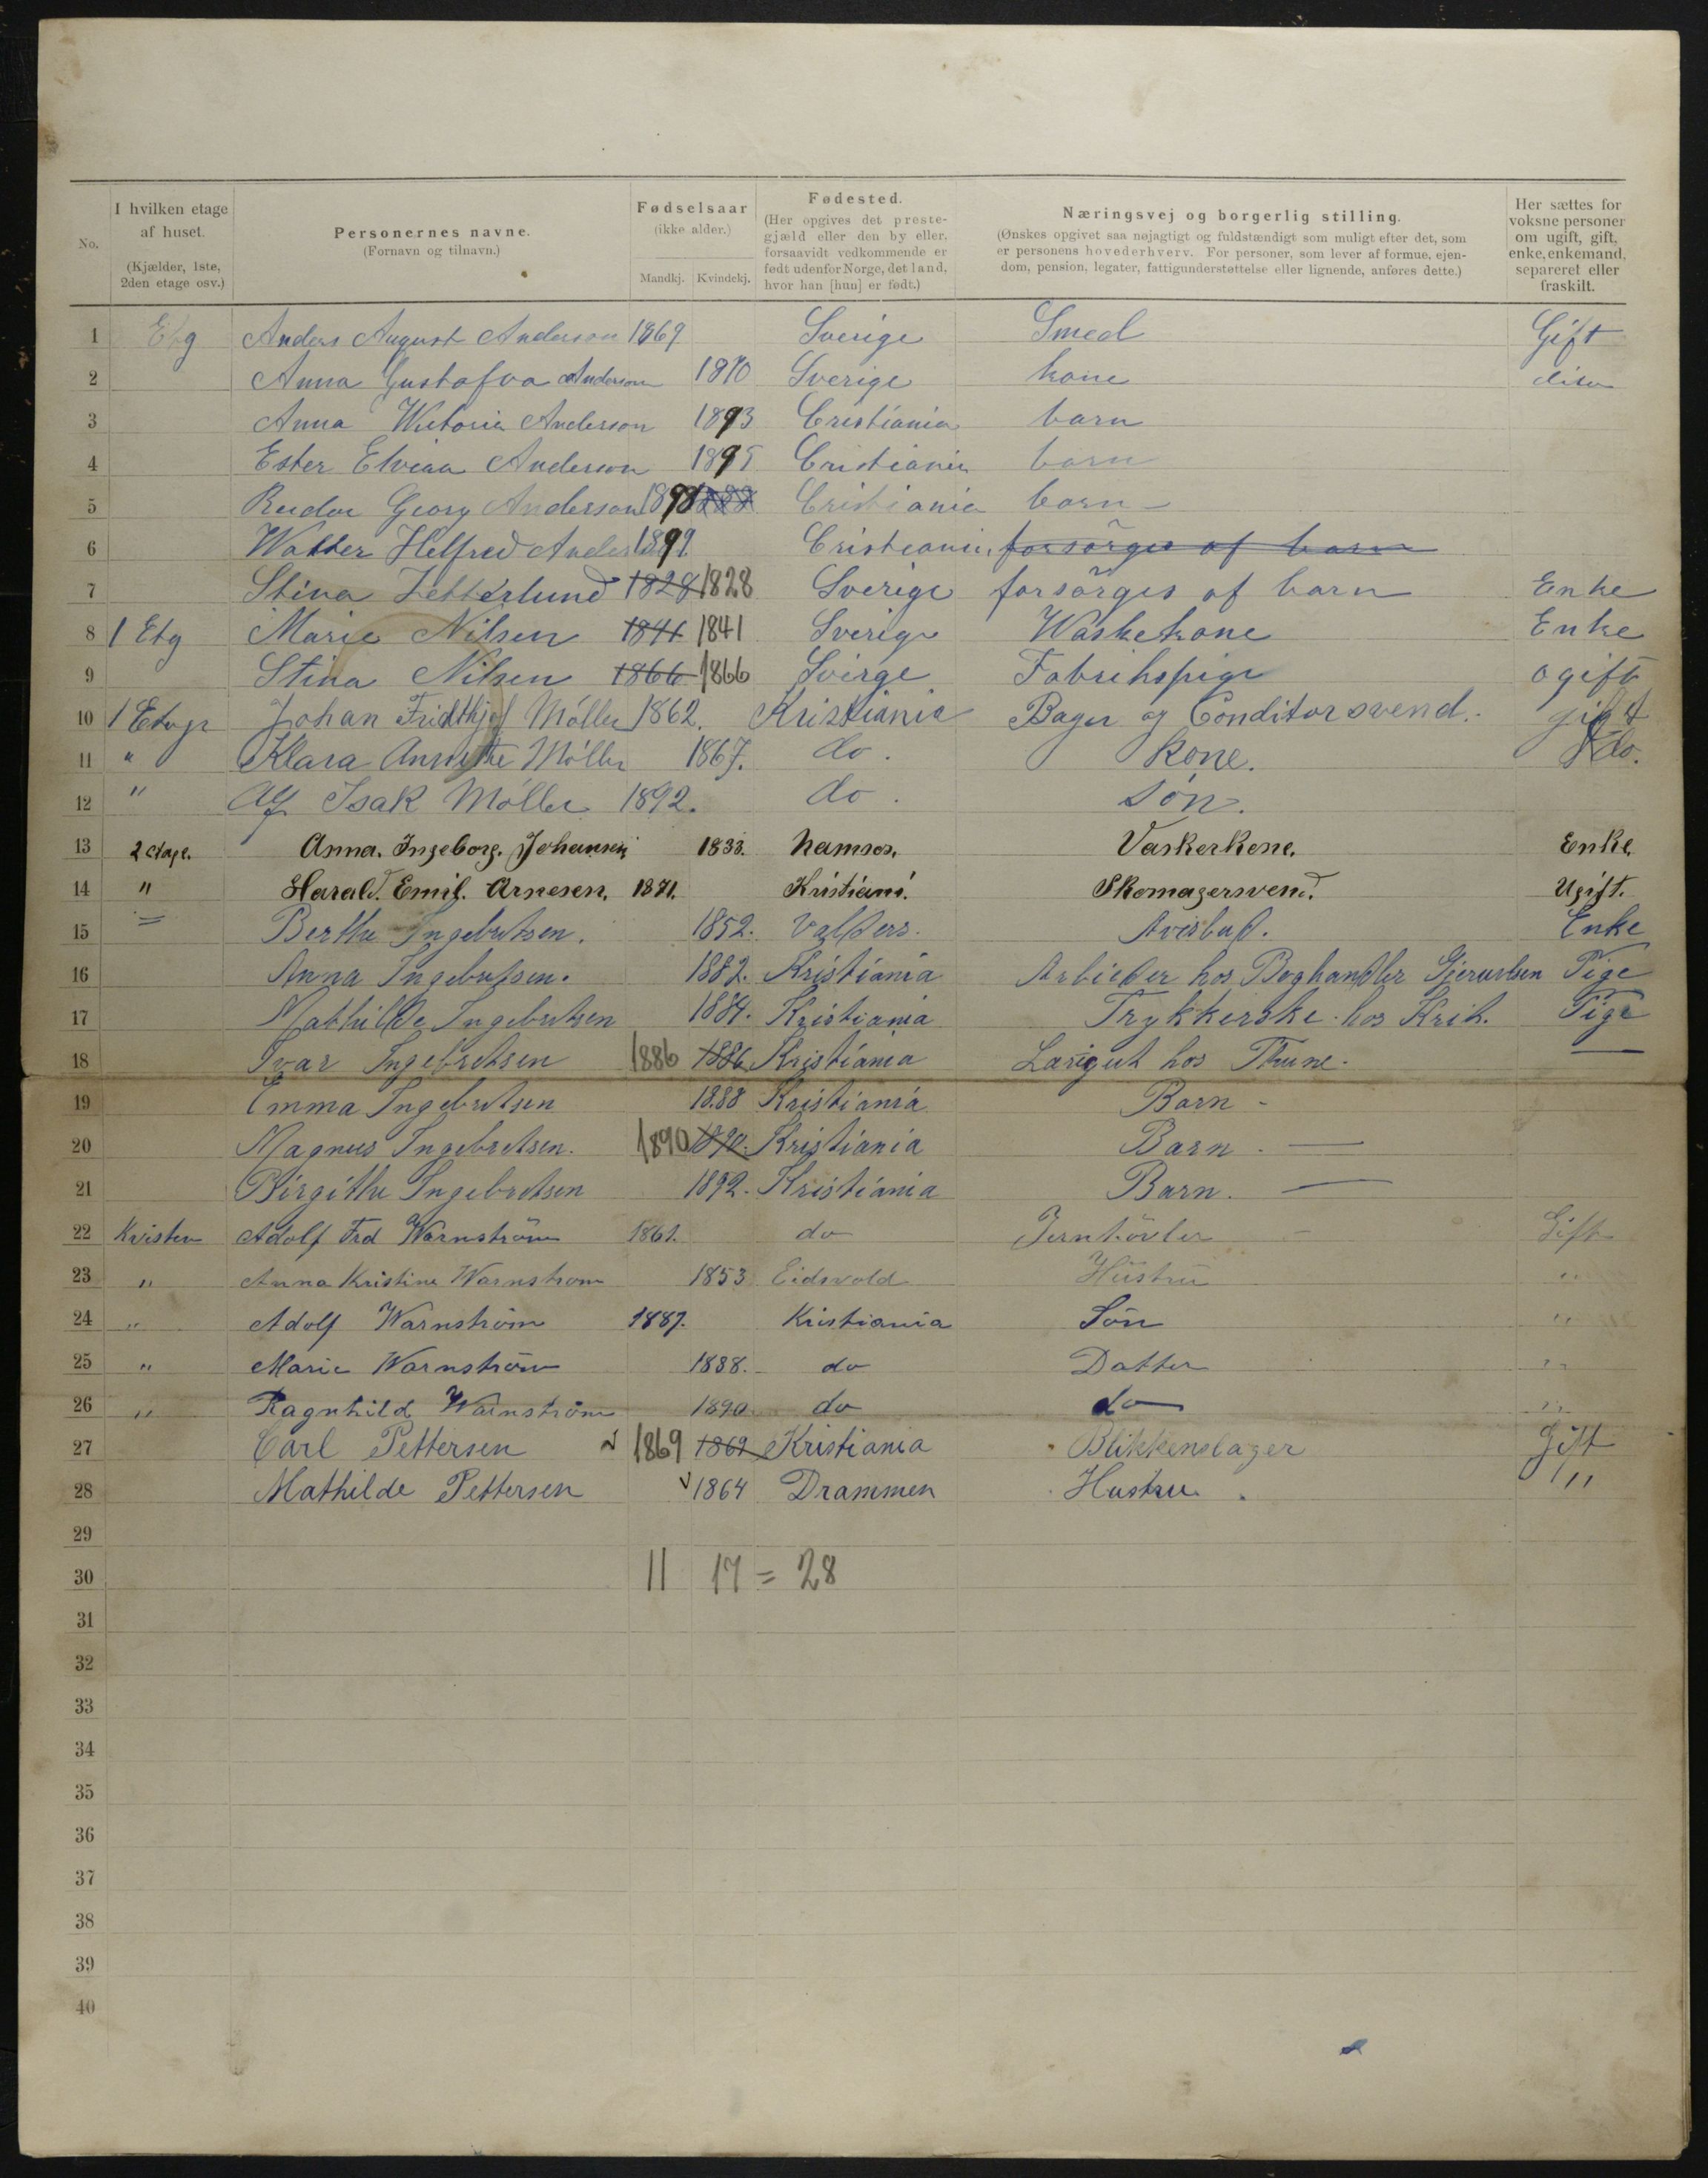 No.
I hvilken etage af huset.
(Kjælder, 1ste, 2den etage osv.)
Personernes navne.
(Fornavn og tilnavn.)
Fødselsaar
(ikke alder.)
Mandkj. Kvindekj.
Fødested.
(Her opgives det prestegjæld eller den by eller, forsaavidt vedkommende er født udenfor Norge, det land, hvor han [hun] er født.)
Næringsvej og borgerlig stilling.
(Ønskes opgivet saa nøjagtigt og fuldstændigt som muligt efter det, som er personens hovederhverv. For personer, som lever af formue, ejendom, pension, legater, fattigunderstøttelse eller lignende, anføres dette.)
Her sættes for voksne personer om ugift, gift, enke, enkemand, separeret eller fraskilt.
1 Etg Anders August Anderson 1869 Sverige Smed Gift
2 Anna Gustafva Anderson 1870 Sverige kone
3 Anna Wictoria Anderson 1893 Cristiania barn
4 Ester Anderson 1895 Cristiania barn
5 Georg Anderson 1898 Cristiania barn
6 Walter Helfred 1899 Cristiania forsørges af barn
7 Stina Zetterlund 1828 1828 Sverige forsörges af barn Enke
8 1 Etg Marie Nilsen 1841 1841 Sverige Waskekone Enke
9 Stina Nilsen 1866 1866 Svirge Fabrikspige ogift
10 1 Etage Johan Fridthjof Møller 1862. Kristiania Bager og Conditorsvend. gift
11 " Klara Annethe Møller 1867. do. Kone. do.
12 " Alf Isak Møller 1892. do. søn.
13 2 etage. Anna. Ingeborg. Johansen 1833. Namsos. Vaskerkone. Enke
14 " Harald. Emil. Arnesen. 1871. Kristiani. Skomagersvend. Ugift.
15 = Berthe Ingebretsen. 1852. Valders. Avisbud. Enke
16 Anna Ingebretsen. 1882. Kristiania Arbieder hos Boghandler Pige
17 Mathilde Ingebretsen 1884. Kristiania Trykkerske hos Pige
18 Ivar Ingebretsen 1886 1886 Kristiania hos Thune. —
19 Emma Ingebretsen 1888 Kristiania Barn -
20 Magnus Ingebretsen. 1890 1890. Kristiania Barn. —
21 Birgithe Ingebretsen 1892. Kristiania Barn. —
22 Kvisten Adolf Frd Warnström 1861. do Jernhövler - Gift
23 " Anna Kristine Warnstrom 1853 Eidsvold Hüstrü "
24 " Adolf Warnström 1887. Kristiania Sön "
25 " Marie Warnström 1888. do Datter "
26 " Ragnhild Warnström 1890 do do "
27 Carl Pettersen 1869 1869 Kristiania Blikkenslager Gift
28 Mathilde Pettersen 1864 Drammen Hustru. "
29
30 11 17 = 28
31
32
33
34
35
36
37
38
39
40